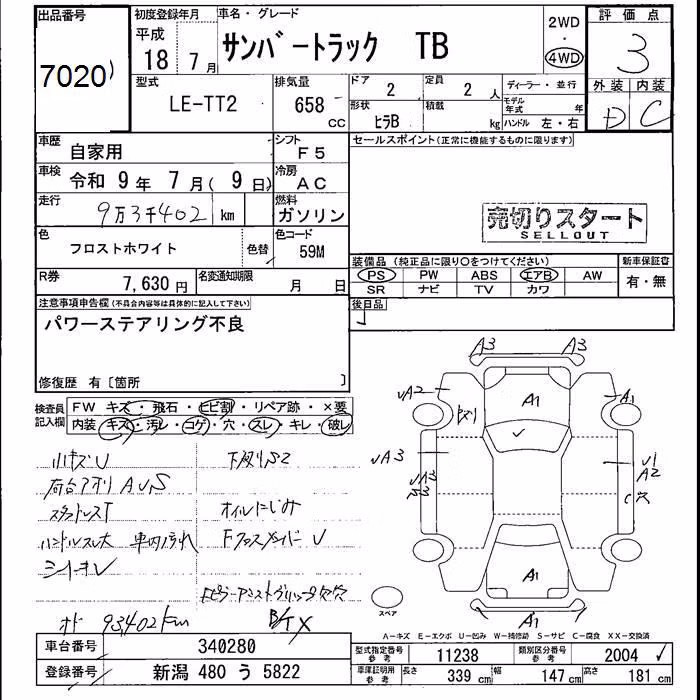 出品番号
7020)
初度登録年月
平成
18年 7月
車名・グレード
サンバートラック TB
2WD
・
4WD
評価点
3
外装 内装
D C
型式
LE-TT2
排気量
658
CC
ドア 2
定員 2 人
ディーラー・並行
形状 ヒラB
積載 kg
モデル年式 年
ハンドル 左・右
車歴
自家用
シフト
F5
セールスポイント(正常に機能するものに限ります)
車検
令和 9年 7月( 9日)
冷房
AC
走行
9万3千402 km
燃料
ガソリン
売切りスタート
SELLOUT
色
フロストホワイト
色替
色コード
59M
装備品 (純正品に限り○をつけてください)
新車保証書
PS PW ABS エアB AW
SR ナビ TV カワ
有・無
R券 7,630円
名変通知期限 月 日
後日品
注意事項申告欄(不具合内容等は具体的に記入して下さい)
パワーステアリング不良
修復歴 有〔箇所 〕
検査員記入欄
FW キズ・飛石・ヒビ割・リペア跡・×要
内装 キズ・汚レ・コゲ・穴・スレ・キレ・破レ
小キズU
下廻りS2
荷台アオリ AUS
スタッドレスT
オイルにじみ
ハンドルスレ大 車内汚れ
Fクロスメンバー U
シートキレ
Fピラーアシストグリップ欠穴
オド 93,402km
A3 A3
UA2 A1 A1
UA3
U1
A2
穴
A1
A1
スペア
A-キズ E-エクボ U-凹み W-補修跡 S-サビ C-腐食 XX-交換済
車台番号 340280
型式指定番号 参考 11238
類別区分番号 参考 2004
登録番号 新潟 480 う 5822
車庫証明用 参考 長さ 339 cm 幅 147 cm 高さ 181 cm